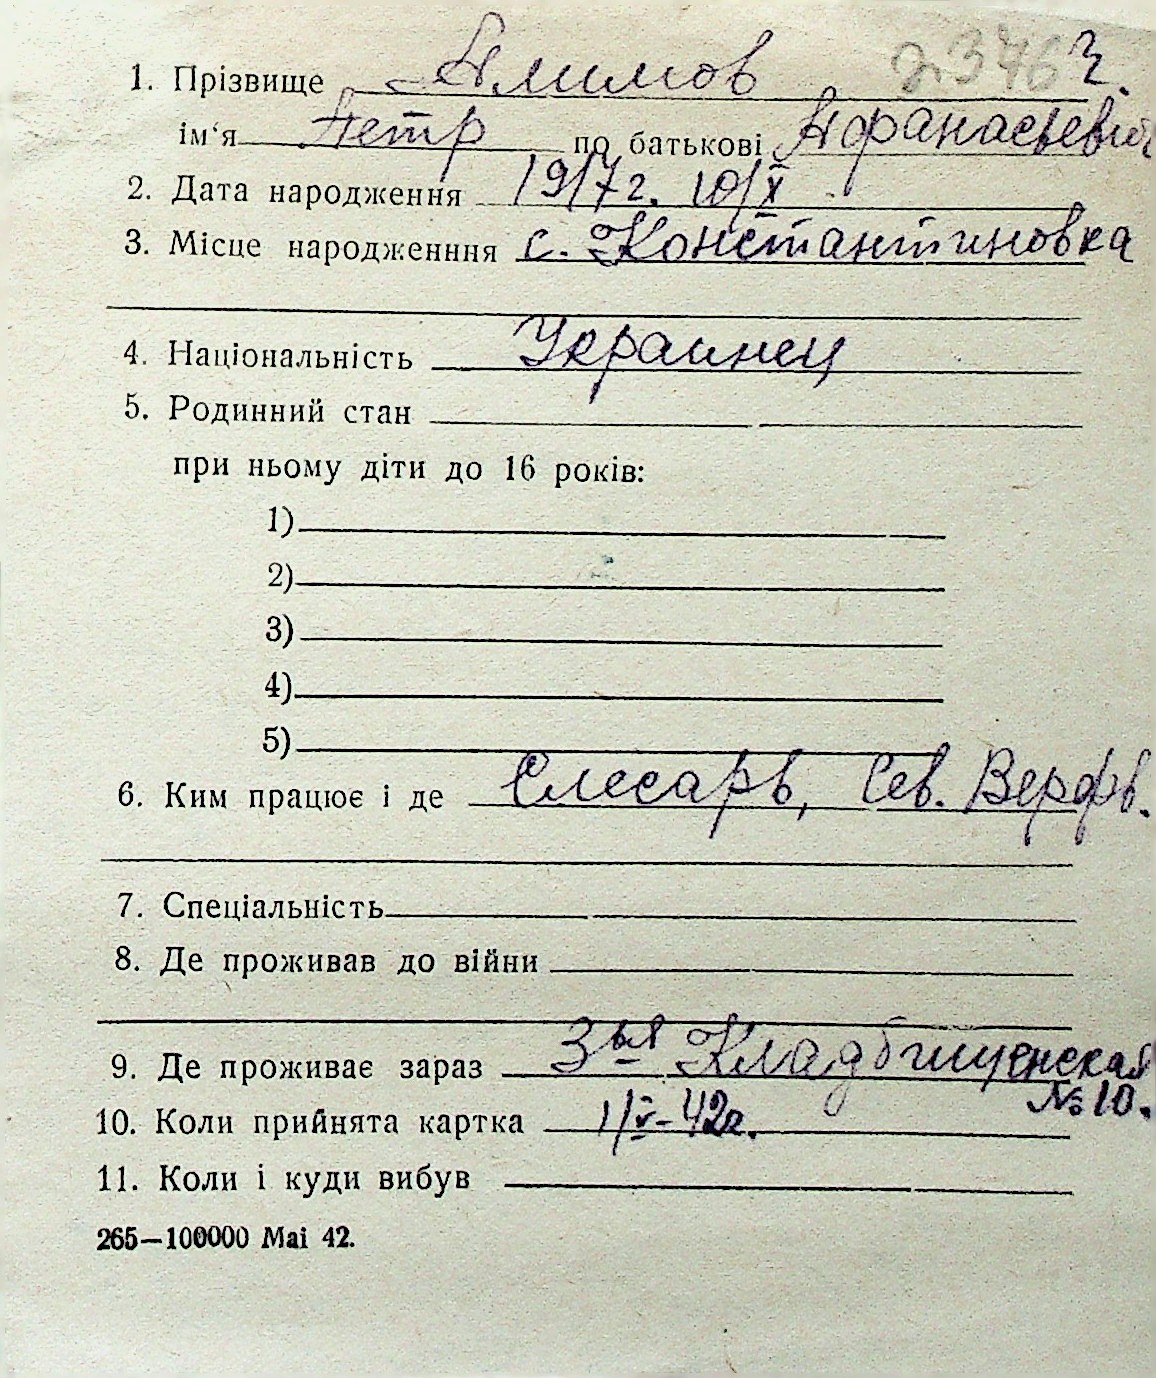 2376 ч.
1. Прізвище Алимов
ім‘я Петр по батькові Афанасьевич
2. Дата народження 1917 г. 10/X
3. Місце народженння с. Константиновка
4. Національність Украинец
5. Родинний стан
при ньому діти до 16 років:
1)
2)
3)
4)
5)
6. Ким працює і де Слесарь, Сев. Верфь.
7. Спеціальність
8. Де проживав до війни
9. Де проживає зараз 3ья Кладбищенская
№ 10.
10. Коли прийнята картка 1/V-42г.
11. Коли і куди вибув
265—100000 Mai 42.